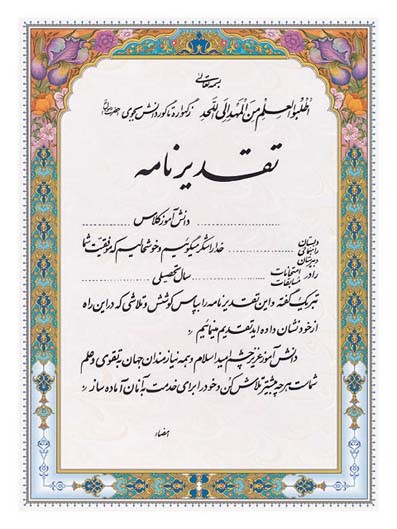 بسمه تعالی
اُطلُبُوا العِلمَ مِنَ المَهدِ اِلَی اللَّحدِ ز گهواره تا گور دانش بجوی
تقدیرنامه
دانش آموز کلاس ........................
دبستان
راهنمایی
دبیرستان ........................ خدا را شکر میگوییم و خوشحالیم که موفقیت شما
را در امتحانات
مسابقات ........................ سال تحصیلی ........................
تبریک گفته و این تقدیرنامه را بپاس کوشش و تلاشی که در این راه
از خود نشان داده اید تقدیم مینمائیم
دانش آموز عزیز چشم امید اسلام و همه نیازمندان جهان به تقوی و علم
شماست هر چه بیشتر تلاش کن و خود را برای خدمت به آنان آماده ساز
امضاء